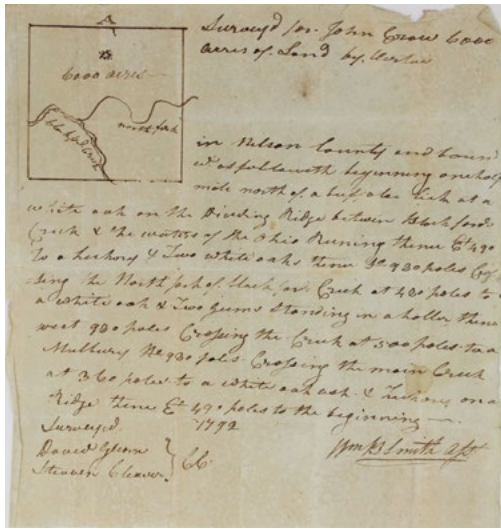 Surveyd for John Crow 6000
acres of Land by
A
6000 acres
north fork
Blackford Creek
in Nelson County and bound
ed as followeth beginning one half
mile north of a buffaloe Lick at a
white oak on the Dividing Ridge betwen Blackfords
Creek & the waters of the Ohio Runing thence Et 490
to a hickory & Two white oaks thence So 980 poles Cro
sing the North fork of Blackfords Creek at 480 poles to
a white oak & Two gums Standing in a holler thence
west 980 poles Crossing the Creek at 500 poles to a
Mulbury No 980 poles Crossing the main Creek
at 360 poles to a white oak ash & hickory on a
Ridge thence Et 490 poles to the beginning
Surveyd 1792
David Glenn
Steaven Cleaver } CC
Wm B Smith